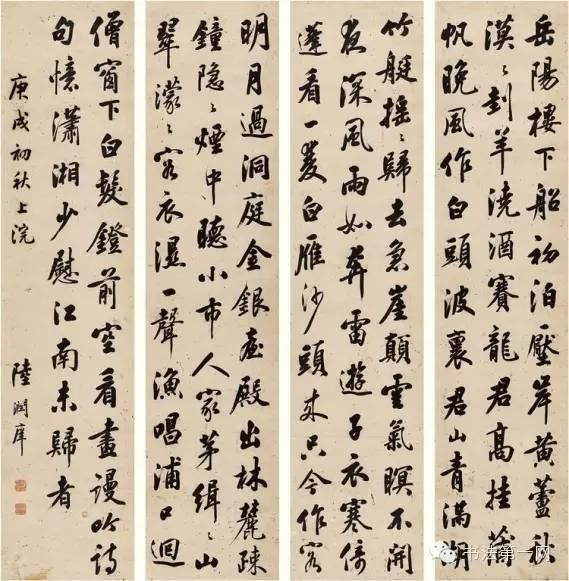 岳陽樓下船初泊壓岸黃蘆秋
漠〻刲羊澆酒賽龍君高挂蒲
帆晚風作白頭波裏君山青滿湖
竹艇搖〻歸去急崖顛雲氣暝不開
夜深風雨如奔雷遊子衣寒倚
蓬看一雙白雁沙頭來只今作客
明月過洞庭金銀臺殿出林麓疎
鐘隱〻煙中聽小市人家茅緝〻山
翠濛〻客衣濕一聲漁唱浦口迴
僧窗下白髮鐙前空看畫謾吟詩
句憶瀟湘少慰江南未歸者
庚戌初秋上浣
陸潤庠
书法第一网